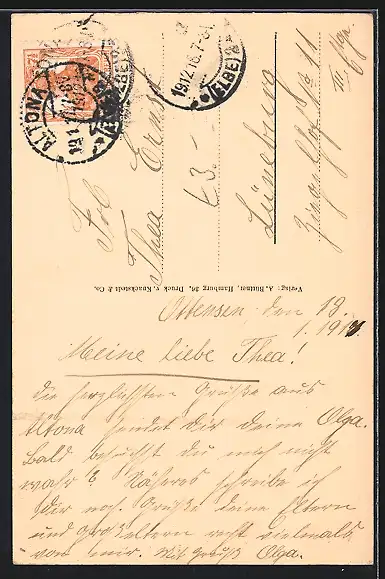 ALTONA
(ELBE)
19.12.16.7-8
(ELBE)
Frl.
Thea Ernst
Lüneburg
III. Etg.
Verlag: A. Büttner, Hamburg 36. Druck v. Knackstedt & Co.
Ottensen, den 19.
Meine liebe Thea!
Die herzlichsten Grüße aus
Altona sendet dir deine Olga.
Bald besuchst du mich nicht
wahr? Näheres schreibe ich
dir noch. Grüße deine Eltern
und Großeltern recht vielmals
von mir. Mit Gruß Olga.